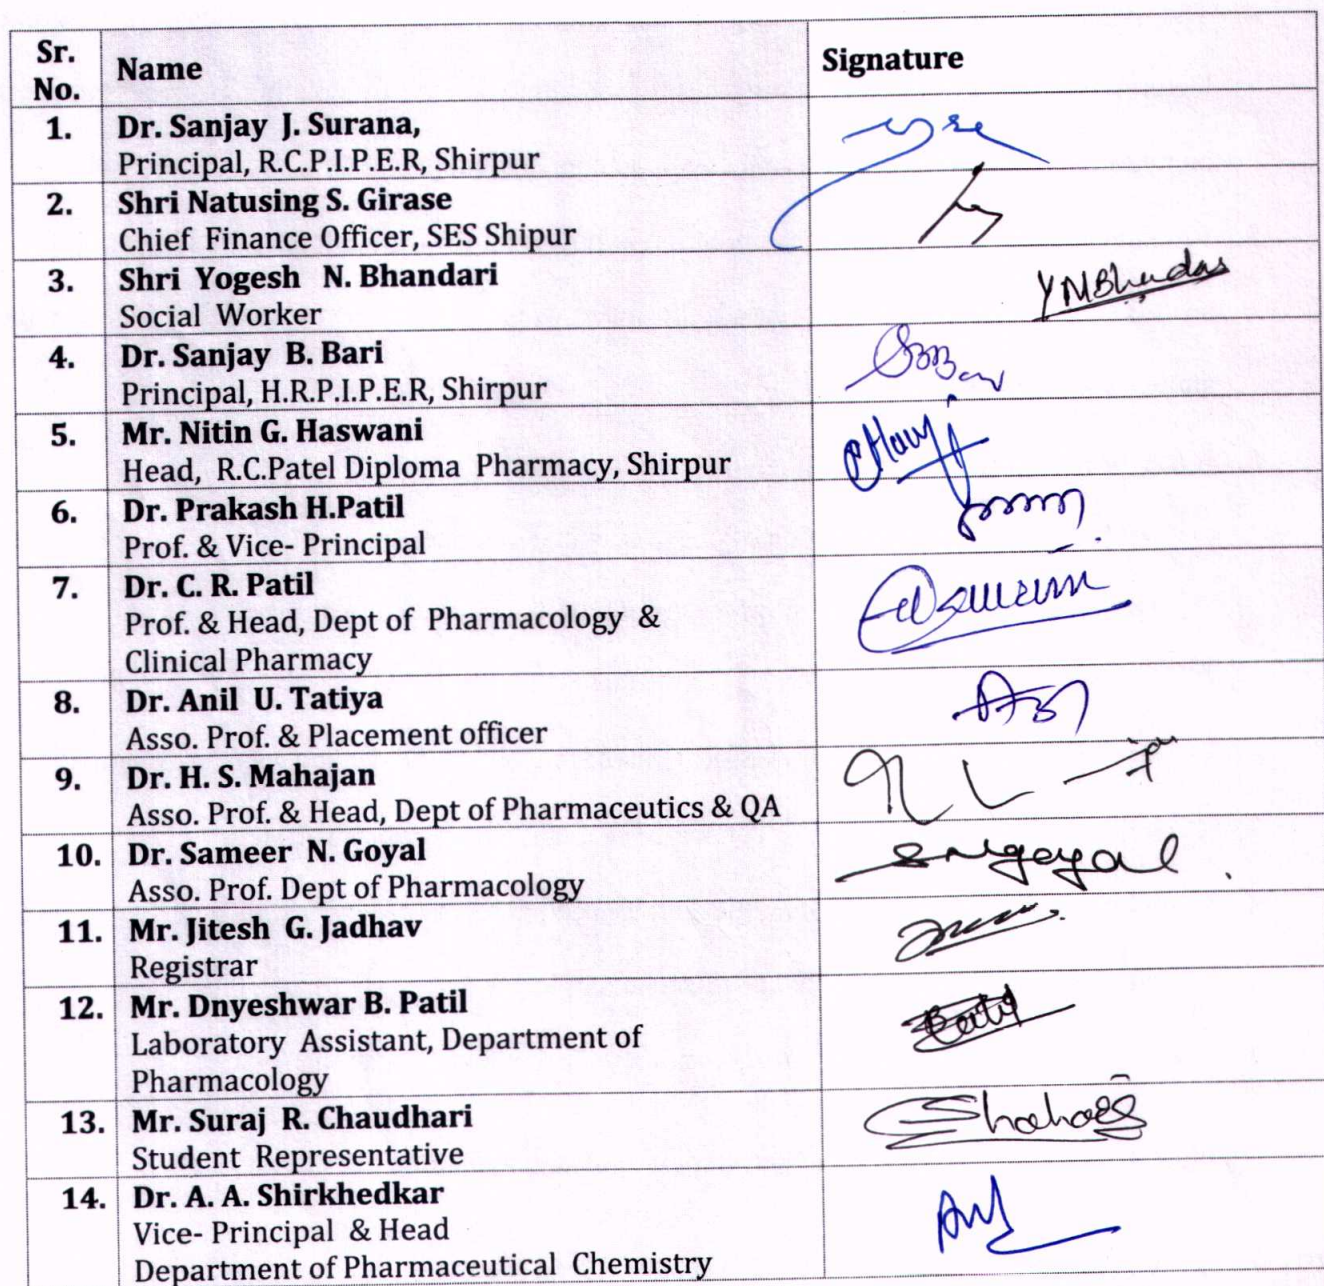 Sr. No. Name Signature
1. Dr. Sanjay J. Surana,
Principal, R.C.P.I.P.E.R, Shirpur
2. Shri Natusing S. Girase
Chief Finance Officer, SES Shipur
3. Shri Yogesh N. Bhandari
Social Worker
4. Dr. Sanjay B. Bari
Principal, H.R.P.I.P.E.R, Shirpur
5. Mr. Nitin G. Haswani
Head, R.C.Patel Diploma Pharmacy, Shirpur
6. Dr. Prakash H.Patil
Prof. & Vice- Principal
7. Dr. C. R. Patil
Prof. & Head, Dept of Pharmacology &
Clinical Pharmacy
8. Dr. Anil U. Tatiya
Asso. Prof. & Placement officer
9. Dr. H. S. Mahajan
Asso. Prof. & Head, Dept of Pharmaceutics & QA
10. Dr. Sameer N. Goyal sngoyal
Asso. Prof. Dept of Pharmacology
11. Mr. Jitesh G. Jadhav
Registrar
12. Mr. Dnyeshwar B. Patil
Laboratory Assistant, Department of
Pharmacology
13. Mr. Suraj R. Chaudhari
Student Representative
14. Dr. A. A. Shirkhedkar
Vice- Principal & Head
Department of Pharmaceutical Chemistry